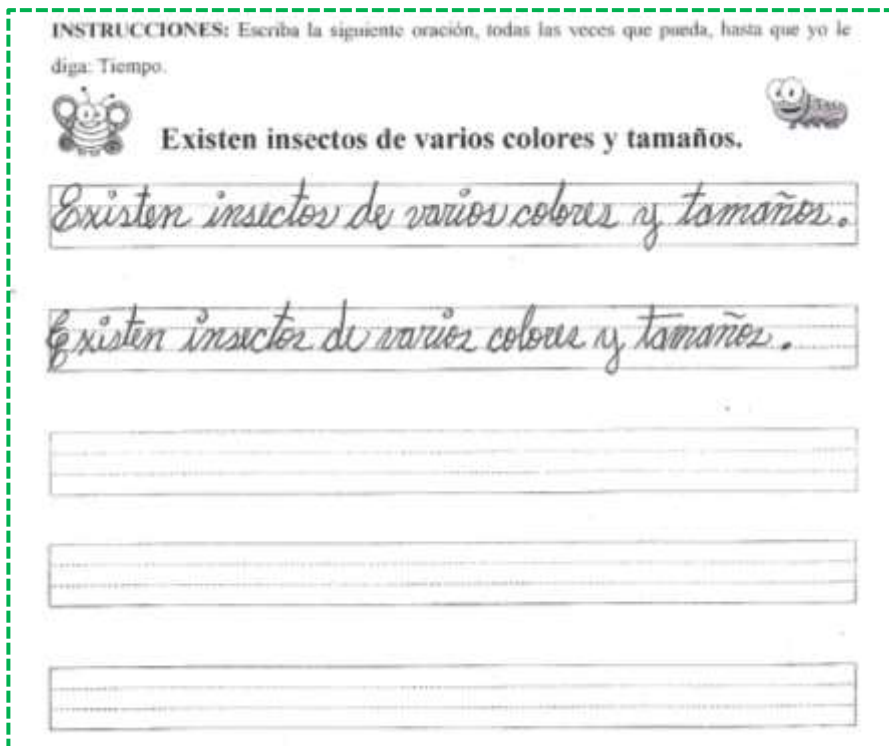 INSTRUCCIONES: Escriba la siguiente oración, todas las veces que pueda, hasta que yo le
diga: Tiempo.
Existen insectos de varios colores y tamaños.
Existen insectos de varios colores y tamaños.
Existen insectos de varios colores y tamaños.